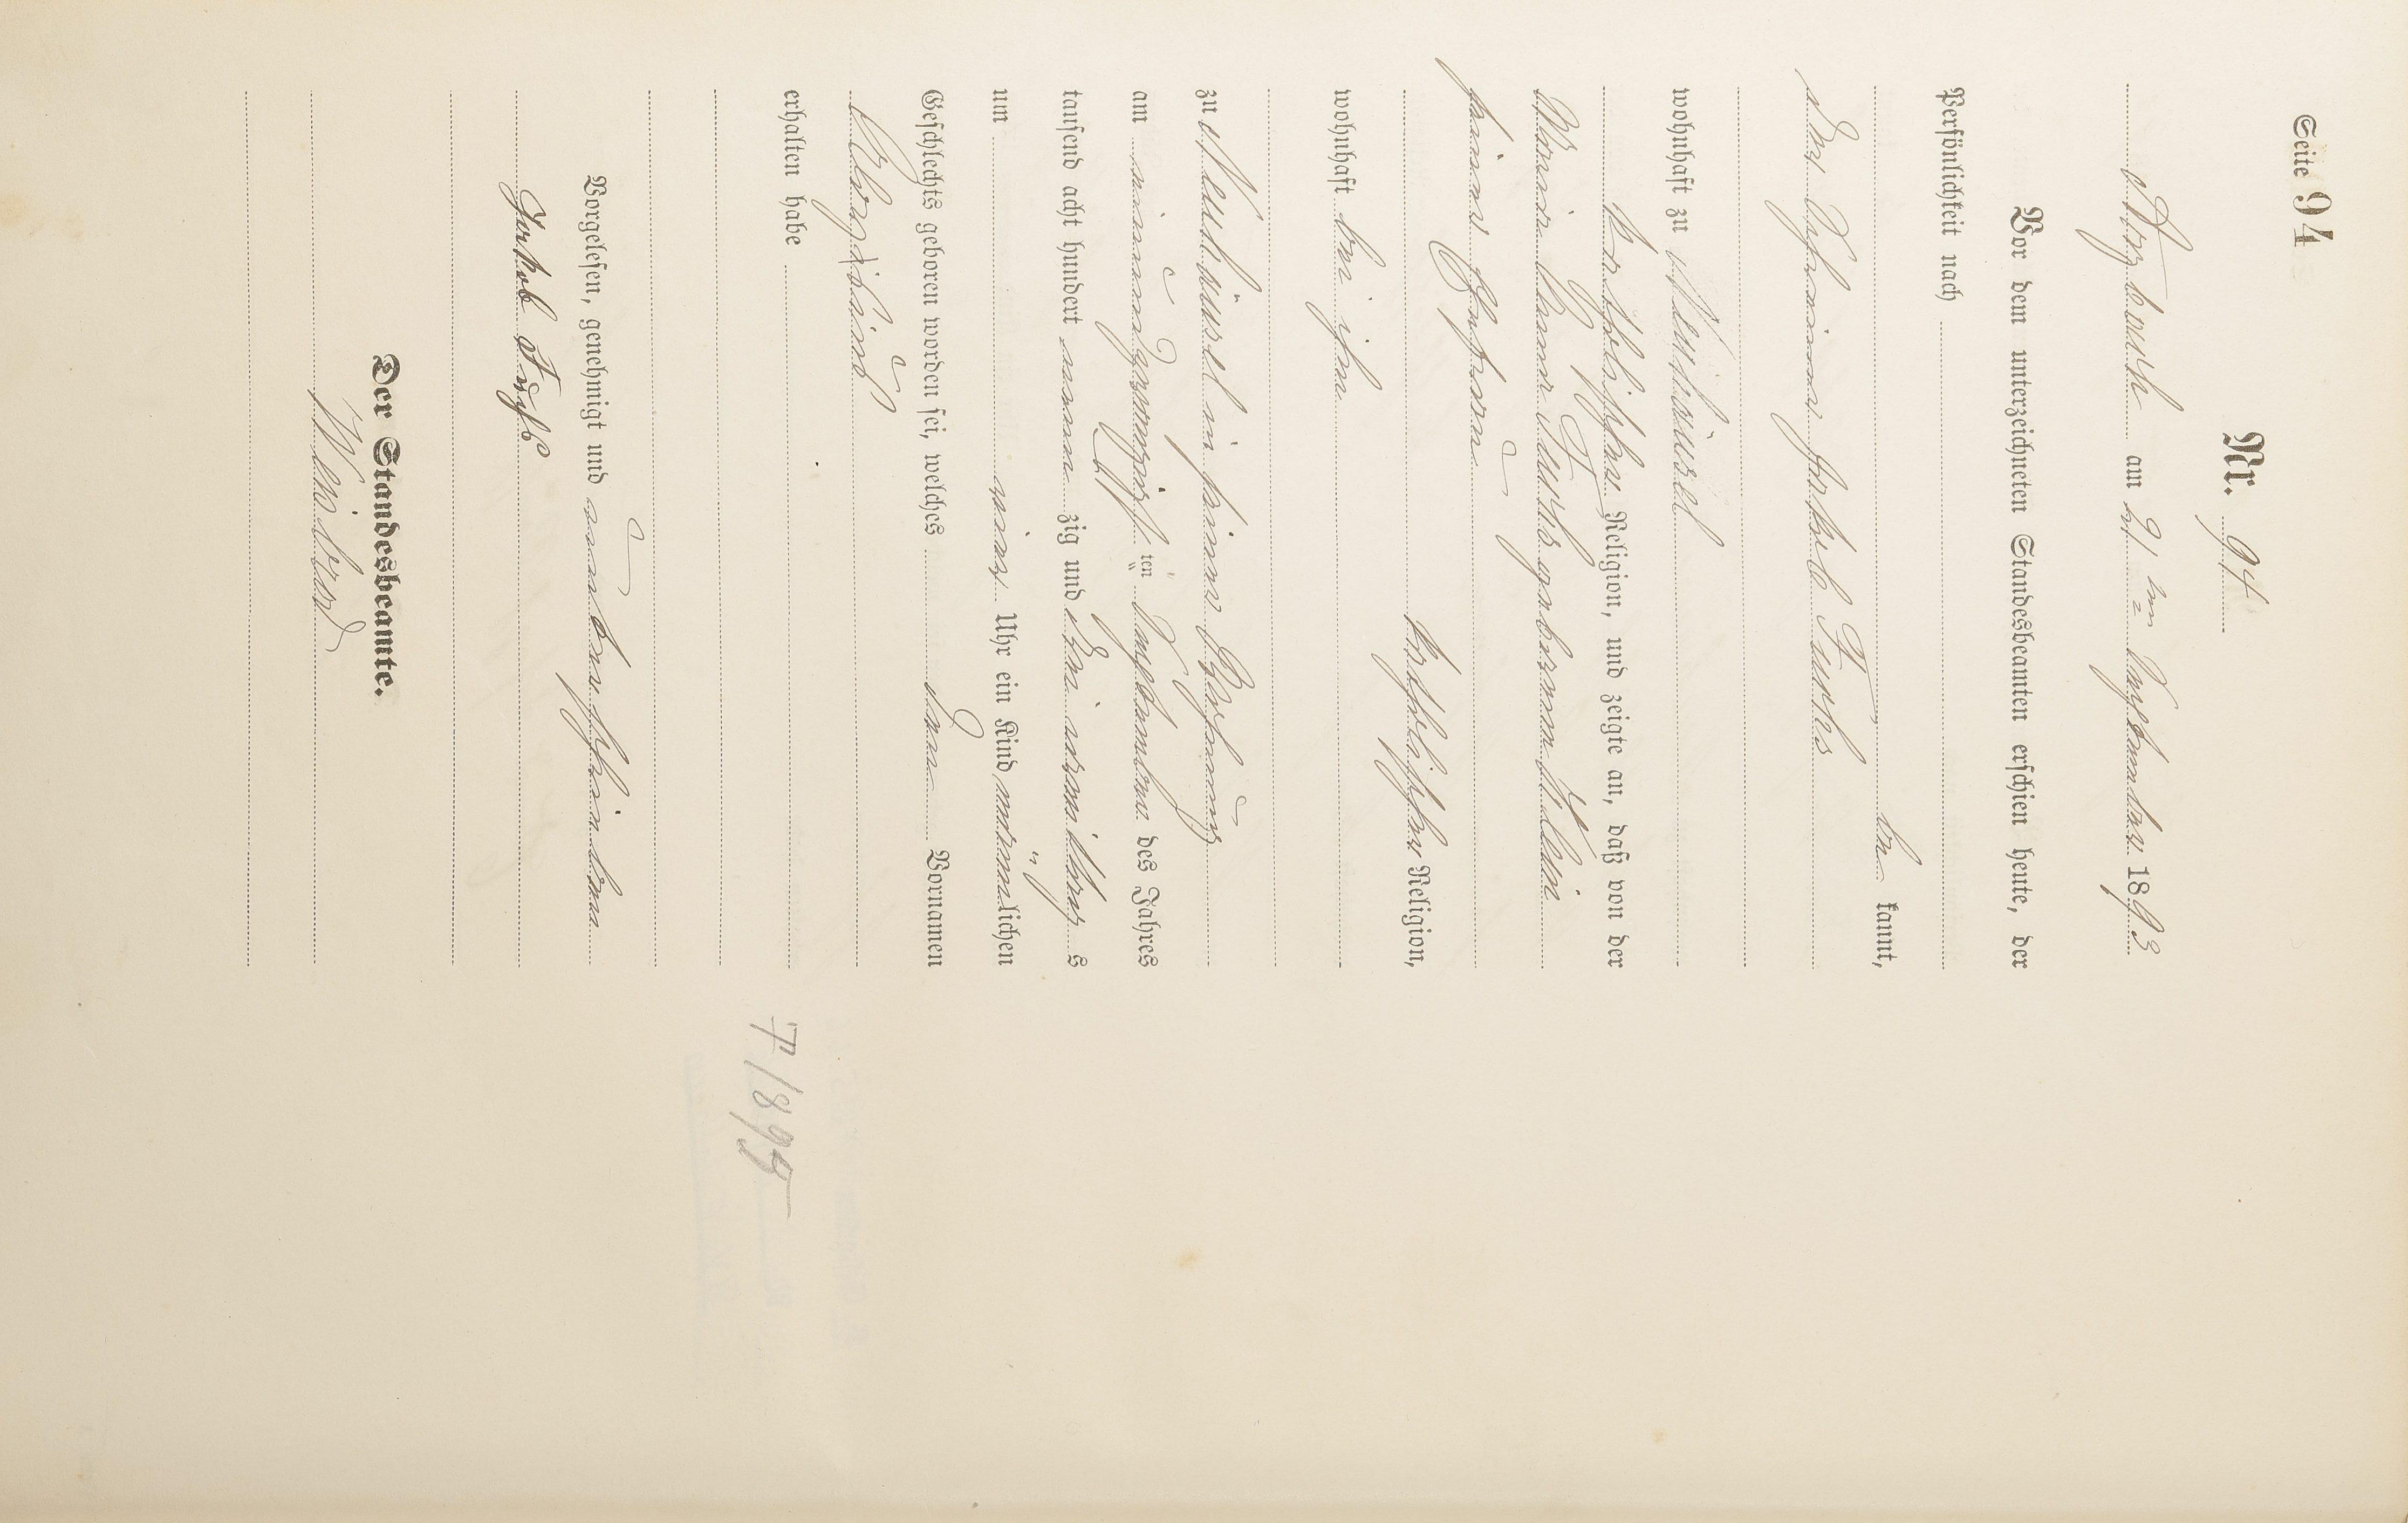 Seite 94
Nr. 94
am 21 ten September 1893
Vor dem unterzeichneten Standesbeamten erschien heute, der
Persönlichkeit nach
be kannt,
der Jakob Fuchs
wohnhaft zu Neuhäusel
katholischer Religion, und zeigte an, daß von der
Maria Anna Fuchs geborenen Klein
seiner Ehefrau
katholischer Religion,
wohnhaft bei ihm
zu Neuhäusel in seiner Behausung
am neunzehn ten September des Jahres
tausend acht hundert neun zig und drei vormittags
um Uhr ein Kind männlichen
Geschlechts geboren worden sei, welches den Vornamen
Aloysius
erhalten habe
Vorgelesen, genehmigt und unterschrieben
Jakob Fuchs
Der Standesbeamte.
† 1895